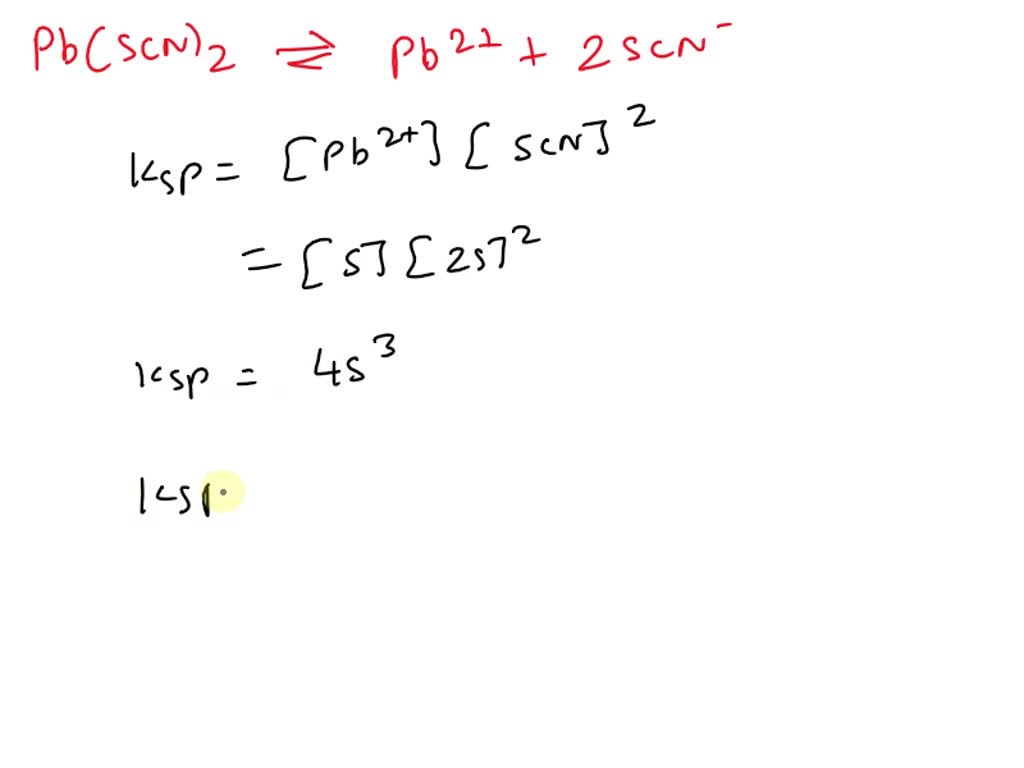 Pb(SCN)2 ⇌ Pb2+ + 2SCN-
Ksp = [Pb2+] [SCN]2
= [S] [2S]2
Ksp = 4S3
Ksp